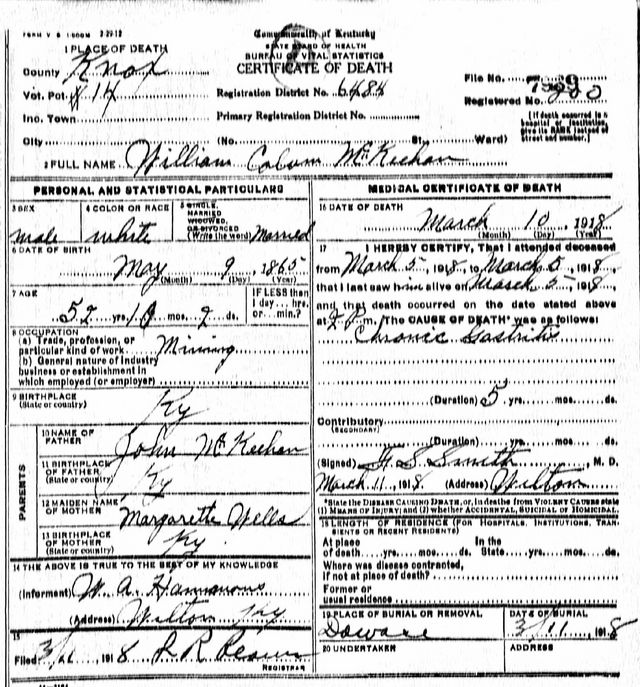 Commonwealth of Kentucky
STATE BOARD OF HEALTH
BUREAU OF VITAL STATISTICS
CERTIFICATE OF DEATH
1 PLACE OF DEATH
County Knox
Vot. Pct # 14
Registration District No. 6484
File No.
Inc. Town
Primary Registration District No.
Registered No.
City (No. St. Ward)
[If death occurred in a hospital or institution, give its NAME instead of street and number.]
2 FULL NAME William Calum McKeehan
PERSONAL AND STATISTICAL PARTICULARS
3 SEX male
4 COLOR OR RACE white
5 SINGLE, MARRIED WIDOWED, OR DIVORCED (Write the word) Married
6 DATE OF BIRTH
May 9, 1865
(Month) (Day) (Year)
7 AGE
52 yrs. 10 mos. 2 ds.
IF LESS than 1 day... hrs. or... min.?
8 OCCUPATION
(a) Trade, profession, or particular kind of work Mining
(b) General nature of industry business or establishment in which employed (or employer)
9 BIRTHPLACE
(State or country) Ky
PARENTS
10 NAME OF FATHER John McKeehan
11 BIRTHPLACE OF FATHER (State or country) Ky
12 MAIDEN NAME OF MOTHER Margarette Wells
13 BIRTHPLACE OF MOTHER (State or country) Ky
14 THE ABOVE IS TRUE TO THE BEST OF MY KNOWLEDGE
(Informant) W. A. Hammons
(Address) Wilton Ky
15
Filed 3/11, 1918
REGISTRAR
MEDICAL CERTIFICATE OF DEATH
16 DATE OF DEATH
March 10, 1918
(Month) (Day) (Year)
17 I HEREBY CERTIFY, That I attended deceased
from March 5, 1918, to March 5, 1918,
that I last saw him alive on March 5, 1918
and that death occurred on the date stated above
at 2 P m. The CAUSE OF DEATH* was as follows:
Chronic Gastritis
(Duration) 5 yrs. mos. ds.
Contributory
(SECONDARY)
(Duration) yrs. mos. ds.
(Signed) G S Smith, M. D.
March 11, 1918 (Address) Wilton
*State the DISEASE CAUSING DEATH, or, in deaths from VIOLENT CAUSES state (1) MEANS OF INJURY; and (2) whether ACCIDENTAL, SUICIDAL or HOMICIDAL.
18 LENGTH OF RESIDENCE (FOR HOSPITALS, INSTITUTIONS, TRANSIENTS OR RECENT RESIDENTS)
At place of death yrs. mos. ds. In the State yrs. mos. ds.
Where was disease contracted, if not at place of death?
Former or usual residence
19 PLACE OF BURIAL OR REMOVAL
DATE OF BURIAL
3/11, 1918
20 UNDERTAKER
ADDRESS